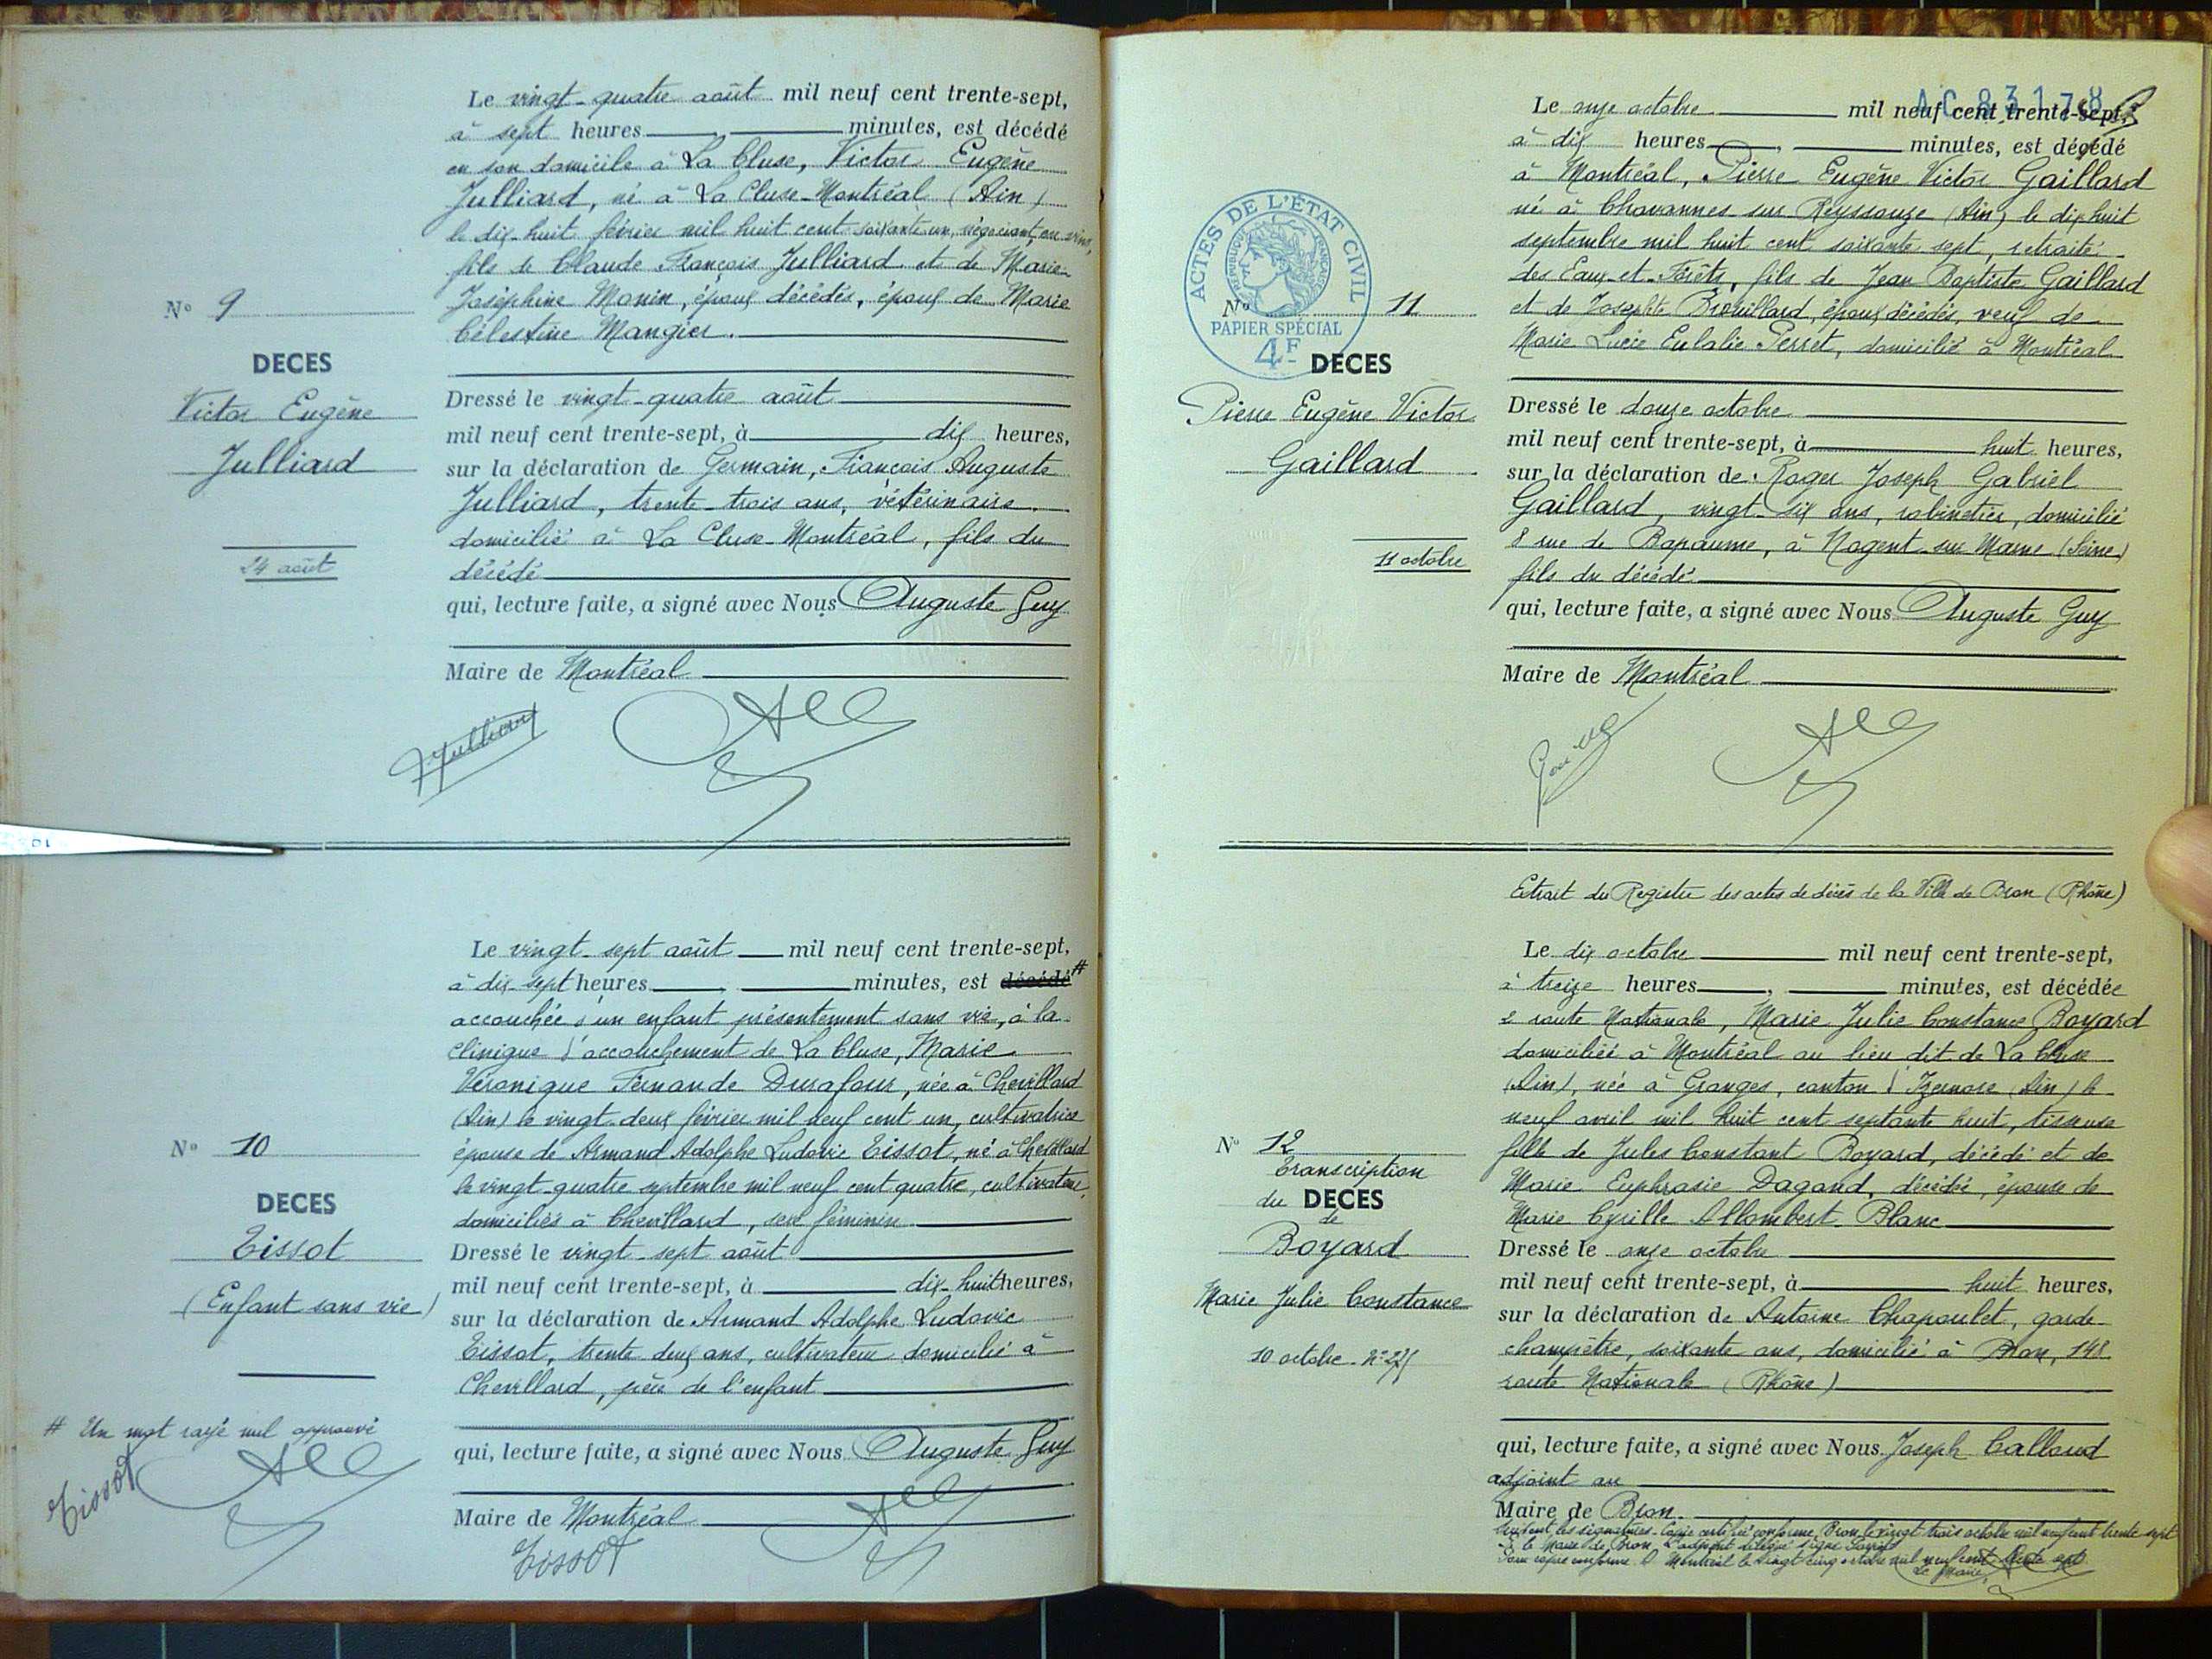 Le vingt-quatre août mil neuf cent trente-sept,
à sept heures, minutes, est décédé
en son domicile à La Cluse, Victor Eugène
Julliard, né à La Cluse-Montréal (Ain)
le dix-huit février mil huit cent soixante un, négociant en vins,
fils de Claude François Julliard et de Marie-
Joséphine Monin, époux décédés, époux de Marie
Célestine Mangier.
N° 9
DECES
Victor Eugène
Julliard
24 août
Dressé le vingt-quatre août
mil neuf cent trente-sept, à dix heures,
sur la déclaration de Germain, François Auguste
Julliard, trente-trois ans, vétérinaire,
domicilié à La Cluse-Montréal, fils du
décédé
qui, lecture faite, a signé avec Nous Auguste Guy
Maire de Montréal
Julliard
Le vingt-sept août mil neuf cent trente-sept,
à dix-sept heures, minutes, est décédé #
accouchée d'un enfant présentement sans vie, à la
clinique d'accouchement de La Cluse, Marie
Véronique Fernande Durafour, née à Chevillard
(Ain) le vingt-deux février mil neuf cent un, cultivatrice
épouse de Armand Adolphe Ludovic Tissot, né à Chevillard
le vingt-quatre septembre mil neuf cent quatre, cultivateur,
domiciliés à Chevillard, sexe féminin
N° 10
DECES
Tissot
(Enfant sans vie)
Dressé le vingt-sept août
mil neuf cent trente-sept, à dix-huit heures,
sur la déclaration de Armand Adolphe Ludovic
Tissot, trente deux ans, cultivateur domicilié à
Chevillard, père de l'enfant
# Un mot rayé nul approuvé
Tissot
qui, lecture faite, a signé avec Nous Auguste Guy
Maire de Montréal
Tissot
AC 83178
Le onze octobre mil neuf cent trente-sept,
à dix heures, minutes, est décédé
à Montréal, Pierre Eugène Victor Gaillard
né à Chavannes-sur-Reyssouze (Ain) le dix huit
septembre mil huit cent soixante sept, retraité
des Eaux-et-Forêts, fils de Jean Baptiste Gaillard
et de Josephte Brouillard, époux décédés, veuf de
Marie Lucie Eulalie Perret, domicilié à Montréal
ACTES DE L'ÉTAT CIVIL
RÉPUBLIQUE FRANÇAISE
PAPIER SPÉCIAL
4F
N° 11
DECES
Pierre Eugène Victor
Gaillard
11 octobre
Dressé le douze octobre
mil neuf cent trente-sept, à huit heures,
sur la déclaration de Roger Joseph Gabriel
Gaillard, vingt-six ans, robinetier, domicilié
8 rue de Bapaume, à Nogent-sur-Marne (Seine)
fils du décédé
qui, lecture faite, a signé avec Nous Auguste Guy
Maire de Montréal
Extrait du Registre des actes de décès de la Ville de Bron (Rhône)
Le dix octobre mil neuf cent trente-sept,
à treize heures, minutes, est décédée
2 route Nationale, Marie Julie Constance Boyard
domiciliée à Montréal au lieu dit de La Cluse
(Ain), née à Granges, canton d'Izernore (Ain) le
neuf avril mil huit cent septante huit, tisseuse
fille de Jules Constant Boyard, décédé et de
Marie Euphrasie Dagand, décédée, épouse de
Marie Cyrille Allombert Blanc
N° 12
Transcription
du DECES
de
Boyard
Marie Julie Constance
10 octobre - N° 275
Dressé le onze octobre
mil neuf cent trente-sept, à huit heures,
sur la déclaration de Antoine Chapoulet, garde-
champêtre, soixante ans, domicilié à Bron, 148
route Nationale (Rhône)
qui, lecture faite, a signé avec Nous Joseph Calland
adjoint au
Maire de Bron.
Suivent les signatures. Copie certifiée conforme, Bron, le vingt trois octobre mil neuf cent trente sept
le Maire de Bron, L'adjoint délégué signé
Pour copie conforme. A Montréal le vingt cinq octobre mil neuf cent trente sept
Le Maire,